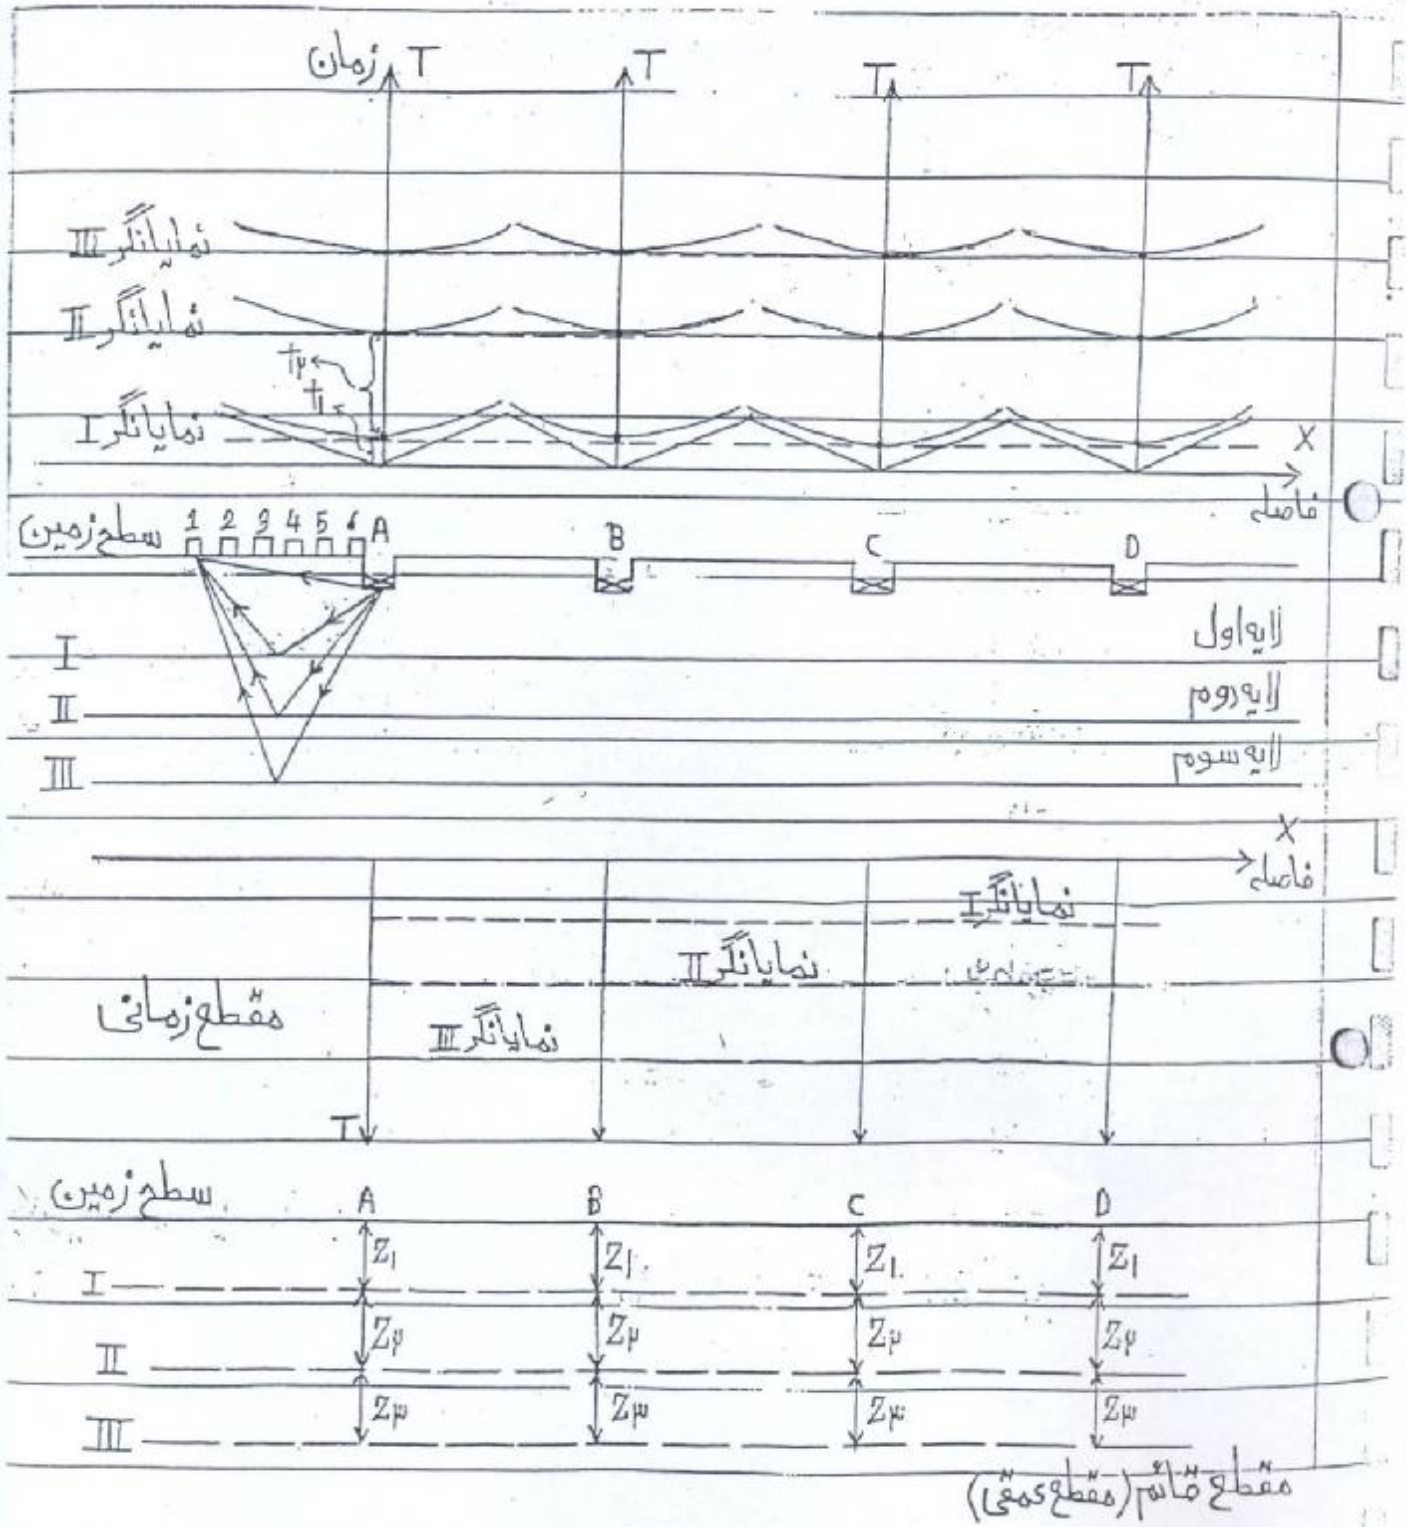 زمان T T T T
نمایانگر III
نمایانگر II
t۲
t۱
نمایانگر I
X
فاصله
سطح زمین 1 2 3 4 5 6 A B C D
لایه اول
I
لایه دوم
II
لایه سوم
III
X
فاصله
نمایانگر I
نمایانگر II
مقطع زمانی
نمایانگر III
T
سطح زمین A B C D
Z۱ Z۱ Z۱ Z۱
I
Z۲ Z۲ Z۲ Z۲
II
Z۳ Z۳ Z۳ Z۳
III
مقطع قائم (مقطع عمقی)